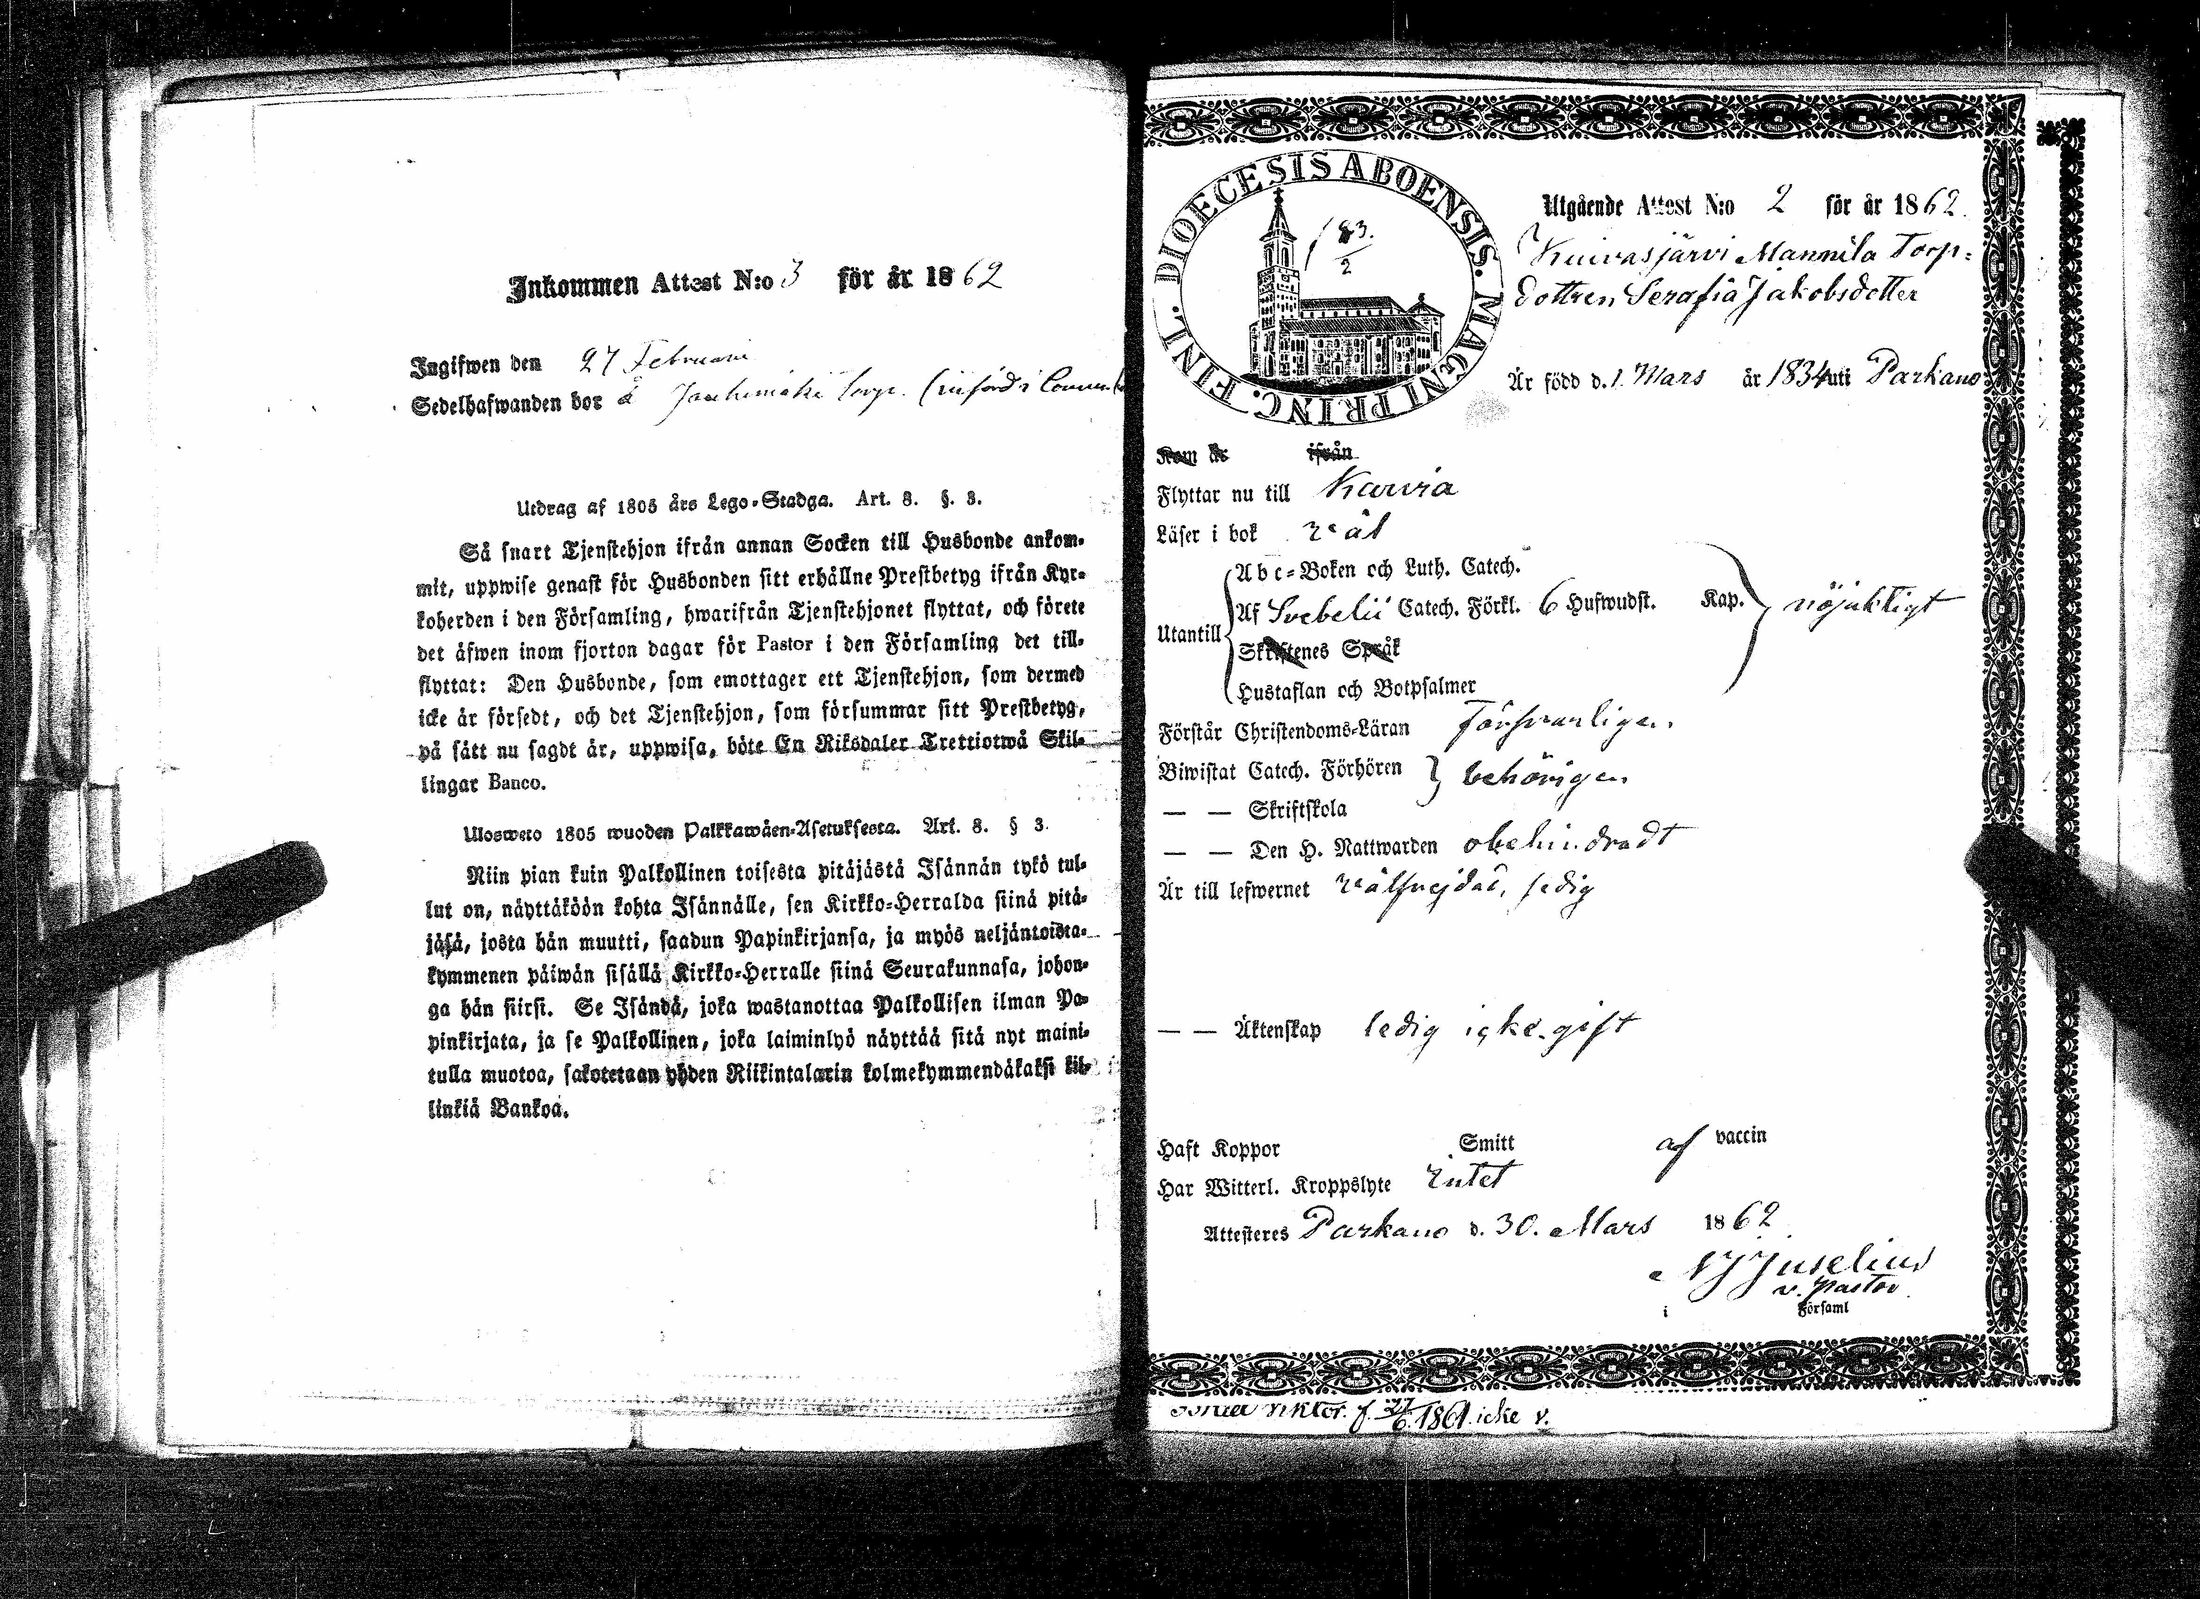 Inkommen Attest N:o 3 för år 1862
Ingifwen den 27 Februari
Sedelhafwanden bor å Jauhimäki torp. (införd i
Utdrag af 1805 års Lego-Stadga. Art. 8. §. 3.
Så snart Tjenstehjon ifrån annan Socken till Husbonde ankom-
mit, uppwise genast för Husbonden sitt erhållne Prestbetyg ifrån Kyr-
koherden i den Församling, hwarifrån Tjenstehjonet flyttat, och förete
det äfwen inom fjorton dagar för Pastor i den Församling det till-
flyttat: Den Husbonde, som emottager ett Tjenstehjon, som dermed
icke är försedt, och det Tjenstehjon, som försummar sitt Prestbetyg,
på sätt nu sagdt är, uppwisa, böte En Riksdaler Trettiotwå Skil-
lingar Banco.
Ulosweto 1805 wuoden Palkkawäen-Asetuksesta. Art. 8. § 3.
Niin pian kuin Palkollinen toisesta pitäjästä Isännän tykö tul-
lut on, näyttäköön kohta Isännälle, sen Kirkko-Herralda siinä pitä-
jäsä, josta hän muutti, saadun Papinkirjansa, ja myös neljäntoista-
kymmenen päiwän sisällä Kirkko-Herralle siinä Seurakunnasa, johon-
ga hän siirsi. Se Isändä, joka wastanottaa Palkollisen ilman Pa-
pinkirjata, ja se Palkollinen, joka laiminlyö näyttää sitä nyt maini-
tulla muotoa, sakotetaan yhden Riikintalarin kolmekymmendäkaksi kil-
linkiä Bankoa.
FINL. DIOECESIS ABOENSIS. MAGNI PRINC.
183.
2
Utgående Attest N:o 2 för år 1862.
Kuivasjärvi Mannila Torp-
dottren Serafia Jakobsdotter
Är född d. 1. Mars år 1834 uti Parkano
Kom år ifrån
Flyttar nu till Karvia
Läser i bok väl
Utantill
Abc-Boken och Luth. Catech.
Af Svebelii Catech. Förkl. 6 Hufwudst. Kap. nöjaktigt
Skriftenes Språk
Hustaflan och Botpsalmer
Förstår Christendoms-Läran försvarligen.
Biwistat Catech. Förhören behörigen
— — Skriftskola
— — Den H. Nattwarden obehindradt
Är till lefwernet välfrejdad, ledig
— — Äktenskap ledig icke gift
Haft Koppor Smitt af vaccin
Har Witterl. Kroppslyte Intet
Attesteres Parkano d. 30. Mars 1862
Juselius
v. Pastor
i Församl
Viktor. f. 27/6 1861. icke v.